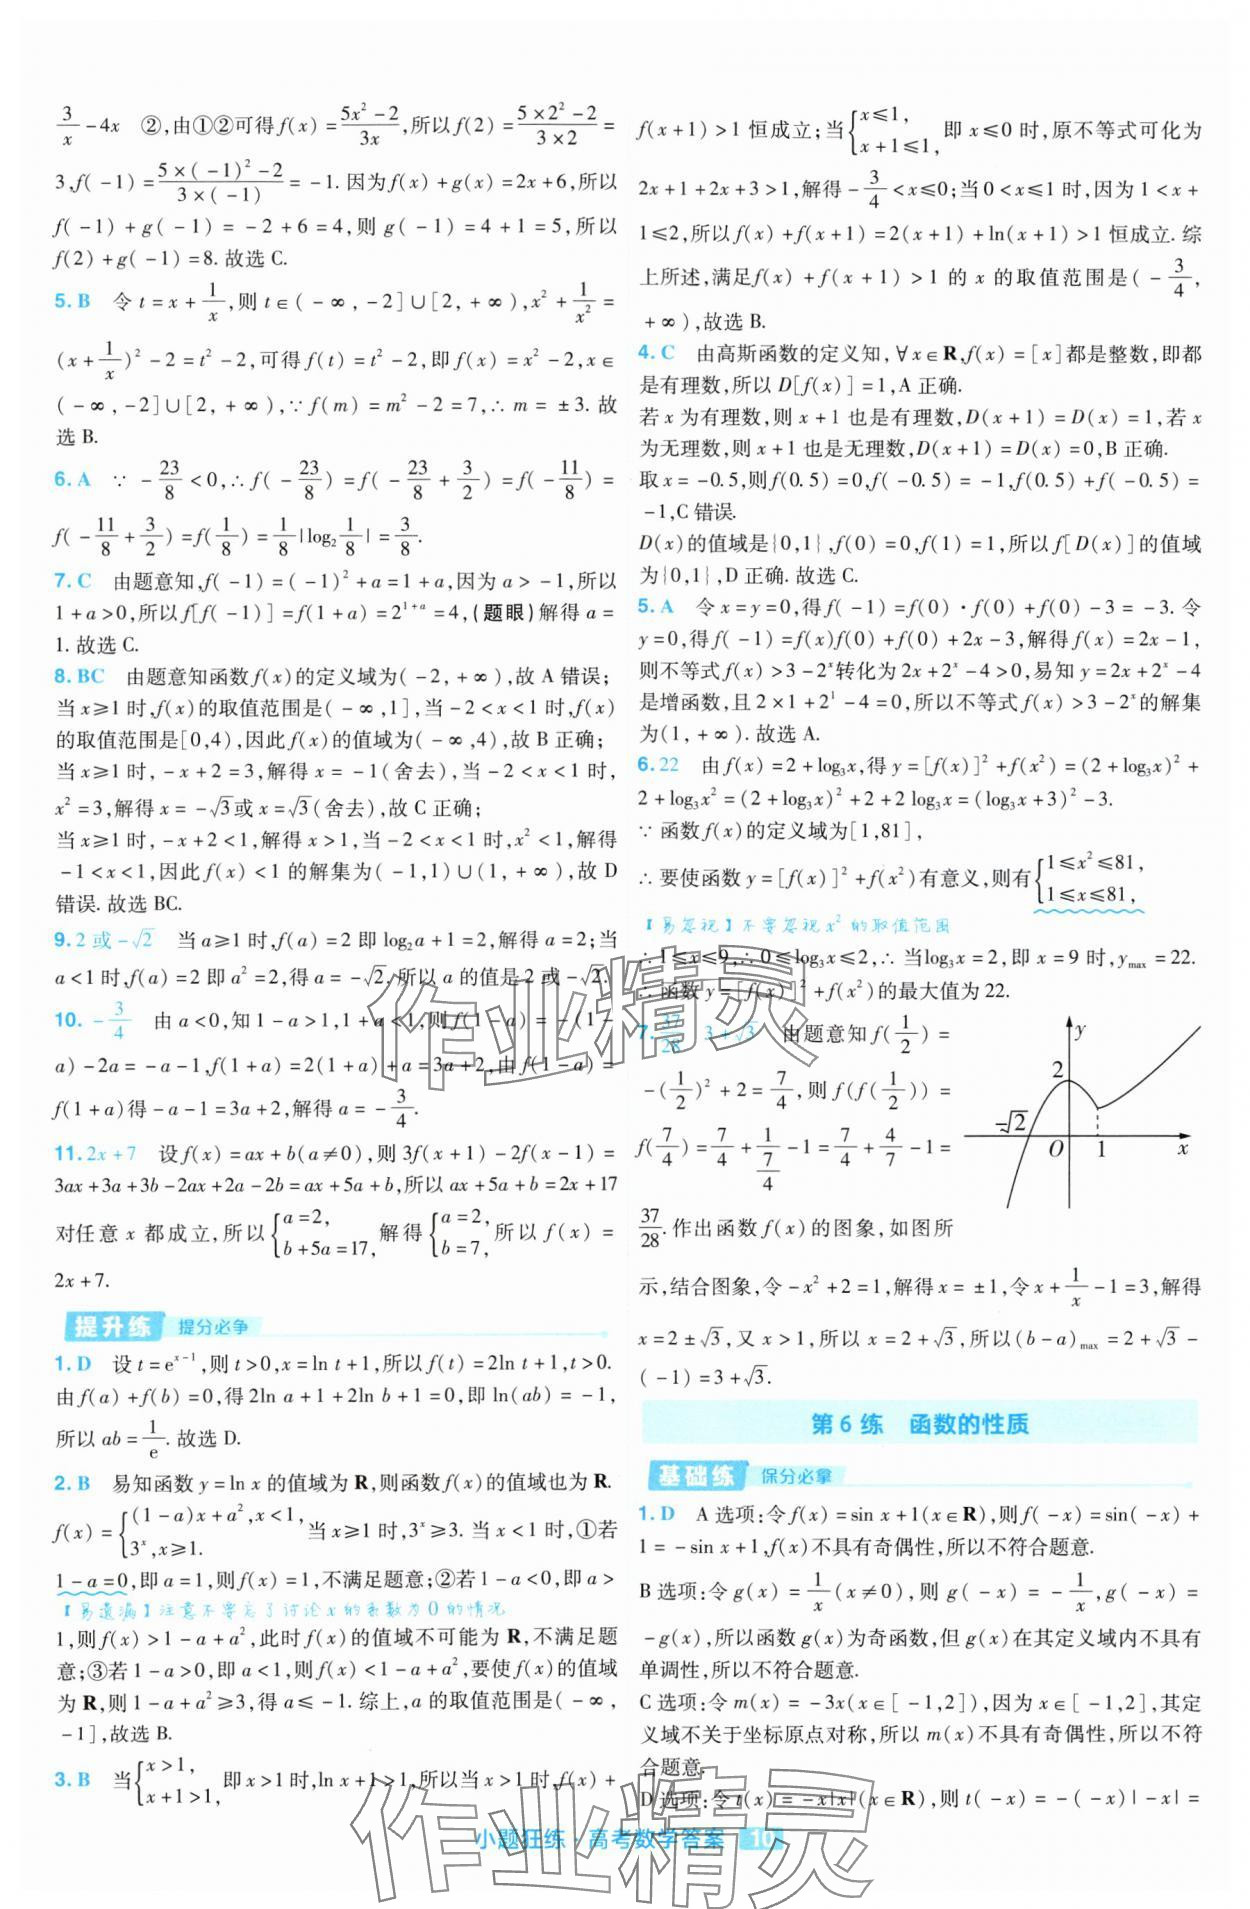 3/x-4x ②,由①②可得f(x)=(5x²-2)/3x,所以f(2)=(5×2²-2)/(3×2)=
3,f(-1)=(5×(-1)²-2)/(3×(-1))=-1.因为f(x)+g(x)=2x+6,所以
f(-1)+g(-1)=-2+6=4,则g(-1)=4+1=5,所以
f(2)+g(-1)=8.故选C.
5.B 令t=x+1/x,则t∈(-∞,-2]∪[2,+∞),x²+1/x²=
(x+1/x)²-2=t²-2,可得f(t)=t²-2,即f(x)=x²-2,x∈
(-∞,-2]∪[2,+∞),∵f(m)=m²-2=7,∴m=±3.故
选B.
6.A ∵-23/8<0,∴f(-23/8)=f(-23/8+3/2)=f(-11/8)=
f(-11/8+3/2)=f(1/8)=1/8|log₂1/8|=3/8.
7.C 由题意知,f(-1)=(-1)²+a=1+a,因为a>-1,所以
1+a>0,所以f[f(-1)]=f(1+a)=2¹⁺ᵃ=4,(题眼)解得a=
1.故选C.
8.BC 由题意知函数f(x)的定义域为(-2,+∞),故A错误;
当x≥1时,f(x)的取值范围是(-∞,1],当-2<x<1时,f(x)
的取值范围是[0,4),因此f(x)的值域为(-∞,4),故B正确;
当x≥1时,-x+2=3,解得x=-1(舍去),当-2<x<1时,
x²=3,解得x=-√3或x=√3(舍去),故C正确;
当x≥1时,-x+2<1,解得x>1,当-2<x<1时,x²<1,解得
-1<x<1,因此f(x)<1的解集为(-1,1)∪(1,+∞),故D
错误.故选BC.
9.2或-√2 当a≥1时,f(a)=2即log₂a+1=2,解得a=2;当
a<1时,f(a)=2即a²=2,解得a=-√2.所以a的值是2或-√2.
10.-3/4 由a<0,知1-a>1,1+a<1,则f(1-a)=-(1-
a)-2a=-a-1,f(1+a)=2(1+a)+a=3a+2,由f(1-a)=
f(1+a)得-a-1=3a+2,解得a=-3/4.
11.2x+7 设f(x)=ax+b(a≠0),则3f(x+1)-2f(x-1)=
3ax+3a+3b-2ax+2a-2b=ax+5a+b,所以ax+5a+b=2x+17
对任意x都成立,所以{a=2, b+5a=17,解得{a=2, b=7,所以f(x)=
2x+7.
提升练 提分必争
1.D 设t=eˣ⁻¹,则t>0,x=ln t+1,所以f(t)=2ln t+1,t>0.
由f(a)+f(b)=0,得2ln a+1+2ln b+1=0,即ln(ab)=-1,
所以ab=1/e.故选D.
2.B 易知函数y=ln x的值域为R,则函数f(x)的值域也为R.
f(x)={(1-a)x+a²,x<1, 3ˣ,x≥1.当x≥1时,3ˣ≥3.当x<1时,①若
1-a=0,即a=1,f(x)=1,不满足题意;②若1-a<0,即a>
【易遗漏】注意不要忘了讨论x的系数为0的情况
1,则f(x)>1-a+a²,此时f(x)的值域不可能为R,不满足题
意;③若1-a>0,即a<1,则f(x)<1-a+a²,要使f(x)的值域
为R,则1-a+a²≥3,得a≤-1.综上,a的取值范围是(-∞,
-1],故选B.
3.B 当{x>1, x+1>1,即x>1时,ln x+1>1,所以当x>1时,f(x)+
f(x+1)>1恒成立;当{x≤1, x+1≤1,即x≤0时,原不等式可化为
2x+1+2x+3>1,解得-3/4<x≤0;当0<x≤1时,因为1<x+
1≤2,所以f(x)+f(x+1)=2(x+1)+ln(x+1)>1恒成立.综
上所述,满足f(x)+f(x+1)>1的x的取值范围是(-3/4,
+∞),故选B.
4.C 由高斯函数的定义知,∀x∈R,f(x)=[x]都是整数,即都
是有理数,所以D[f(x)]=1,A正确.
若x为有理数,则x+1也是有理数,D(x+1)=D(x)=1,若x
为无理数,则x+1也是无理数,D(x+1)=D(x)=0,B正确.
取x=-0.5,则f(0.5)=0,f(-0.5)=-1,f(0.5)+f(-0.5)=
-1,C错误.
D(x)的值域是{0,1},f(0)=0,f(1)=1,所以f[D(x)]的值域
为{0,1},D正确.故选C.
5.A 令x=y=0,得f(-1)=f(0)·f(0)+f(0)-3=-3.令
y=0,得f(-1)=f(x)f(0)+f(0)+2x-3,解得f(x)=2x-1,
则不等式f(x)>3-2ˣ转化为2x+2ˣ-4>0,易知y=2x+2ˣ-4
是增函数,且2×1+2¹-4=0,所以不等式f(x)>3-2ˣ的解集
为(1,+∞).故选A.
6.22 由f(x)=2+log₃x,得y=[f(x)]²+f(x²)=(2+log₃x)²+
2+log₃x²=(2+log₃x)²+2+2log₃x=(log₃x+3)²-3.
∵函数f(x)的定义域为[1,81],
∴要使函数y=[f(x)]²+f(x²)有意义,则有{1≤x²≤81, 1≤x≤81,
【易忽视】不要忽视x²的取值范围
∴1≤x≤9,∴0≤log₃x≤2,∴当log₃x=2,即x=9时,yₘₐₓ=22.
∴函数y=[f(x)]²+f(x²)的最大值为22.
7.37/28 3+√3 由题意知f(1/2)=
-(1/2)²+2=7/4,则f(f(1/2))=
f(7/4)=7/4+1/(7/4)-1=7/4+4/7-1=
37/28.作出函数f(x)的图象,如图所
y
2
-√2
O 1 x
示,结合图象,令-x²+2=1,解得x=±1,令x+1/x-1=3,解得
x=2±√3,又x>1,所以x=2+√3,所以(b-a)ₘₐₓ=2+√3-
(-1)=3+√3.
第6练 函数的性质
基础练 保分必拿
1.D A选项:令f(x)=sin x+1(x∈R),则f(-x)=sin(-x)+
1=-sin x+1,f(x)不具有奇偶性,所以不符合题意.
B选项:令g(x)=1/x(x≠0),则g(-x)=-1/x,g(-x)=
-g(x),所以函数g(x)为奇函数,但g(x)在其定义域内不具有
单调性,所以不符合题意.
C选项:令m(x)=-3x(x∈[-1,2]),因为x∈[-1,2],其定
义域不关于坐标原点对称,所以m(x)不具有奇偶性,所以不符
合题意.
D选项:令t(x)=-x|x|(x∈R),则t(-x)=-(-x)|-x|=
小题狂练·高考数学答案 10
作业精灵
作业精灵